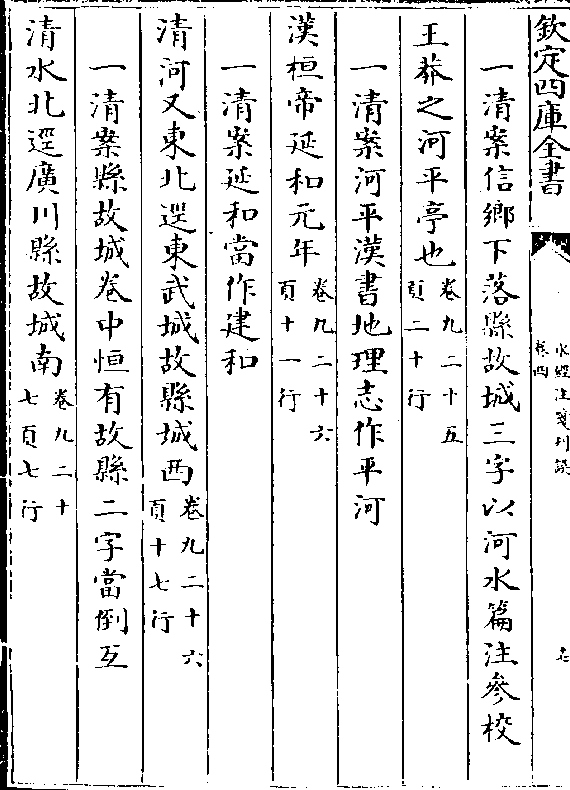 欽定四庫全書
水經注箋刊誤
卷四
一清案信鄉下落縣故城三字以河水篇注參校
王莽之河平亭也卷九二十五頁二十行
一清案河平漢書地理志作平河
漢桓帝延和元年卷九二十六頁十一行
一清案延和當作建和
清河又東北逕東武城故縣城西卷九二十六頁十七行
一清案縣故城卷中恒有故縣二字當倒互
清水北逕廣川縣故城南卷九二十七頁七行